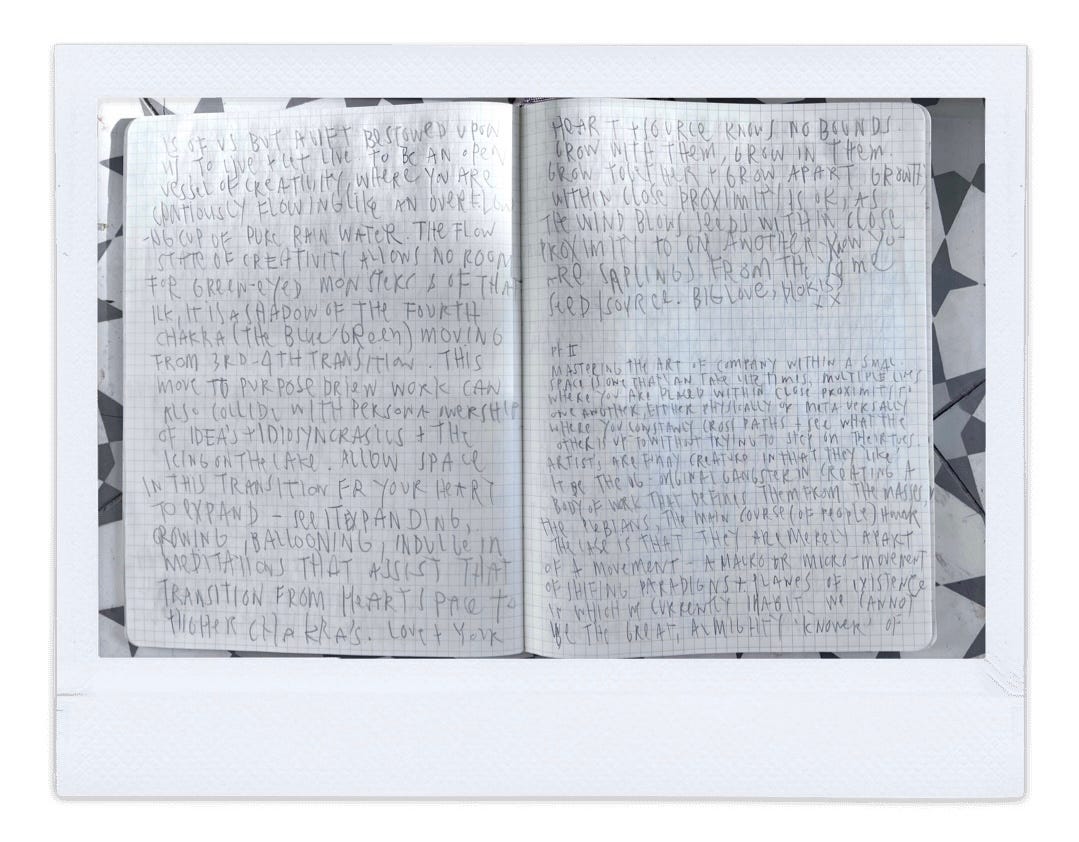 IS OF US BUT A GIFT BESTOWED UPON
US TO LIVE + LET LIVE. TO BE AN OPEN
VESSEL OF CREATIVITY, WHERE YOU ARE
CONTIOUSLY FLOWING LIKE AN OVERFLOW
-NG CUP OF PURE RAIN WATER. THE FLOW
STATE OF CREATIVITY ALLOWS NO ROOM
FOR GREEN-EYED MONSTERS & OF THAT
ILK, IT IS A SHADOW OF THE FOURTH
CHAKRA (THE BLUE/GREEN) MOVING
FROM 3RD-4TH TRANSITION. THIS
MOVE TO PURPOSE DRIEW WORK CAN
ALSO COLLIDE WITH PERSONA OWERSHIP
OF IDEA'S + IDIOSYNCRASIES + THE
ICING ON THE CAKE. ALLOW SPACE
IN THIS TRANSITION FR YOUR HEART
TO EXPAND - SEE IT EXPANDING,
GROWING, BALLOONING, INDULGE IN
MEDITATIONS THAT ASSIST THAT
TRANSITION FROM HEART SPACE TO
HIGHER CHAKRA'S. LOVE + YOUR
HEART + SOURCE KNOWS NO BOUNDS.
GROW WITH THEM, GROW IN THEM.
GROW TOGETHER + GROW APART GROWTH,
WITHIN CLOSE PROXIMITY IS OK, AS
THE WIND BLOWS SEEDS WITHIN CLOSE
PROXIMITY TO ON ANOTHER, KNOW YO-
-RE SAPLINGS FROM THE SAME
SEED/SOURCE. BIG LOVE,
xx
PT II
MASTERING THE ART OF COMPANY WITHIN A SMALL
SPACE IS ONE THAT CAN TAKE LIFE TIMES, MULTIPLE LIVES
WHERE YOU ARE PLACED WITHIN CLOSE PROXIMITY TO
ONE ANOTHER, EITHER PHYSICALLY OR METAVERSALLY
WHERE YOU CONSTANY CROSS PATHS + SEE WHAT THE
OTHER IS UP TO WITHOUT TRYING TO STEP ON THEIR
ARTISTS, ARE FUNNY CREATURES IN THAT THEY LIKE
IT BE THE OG ORGINAL GANGSTER IN CREATING A
BODY OF WORK THAT DEFINES THEM FROM THE MASSES
THE PLEBIANS, THE MAIN COURSE (OF PEOPLE)
THE CASE IS THAT THEY ARE MERELY APART
OF A MOVEMENT - A MALKO OR MICRO-MOVEMENT
OF SHIFING PARADIGNS + PLANES OF EXISTENCE
IS WHICH W CURRENTLY INABIT. WE CANNOT
BE THE GREAT, ALMIGHTY 'KNOWER' OF